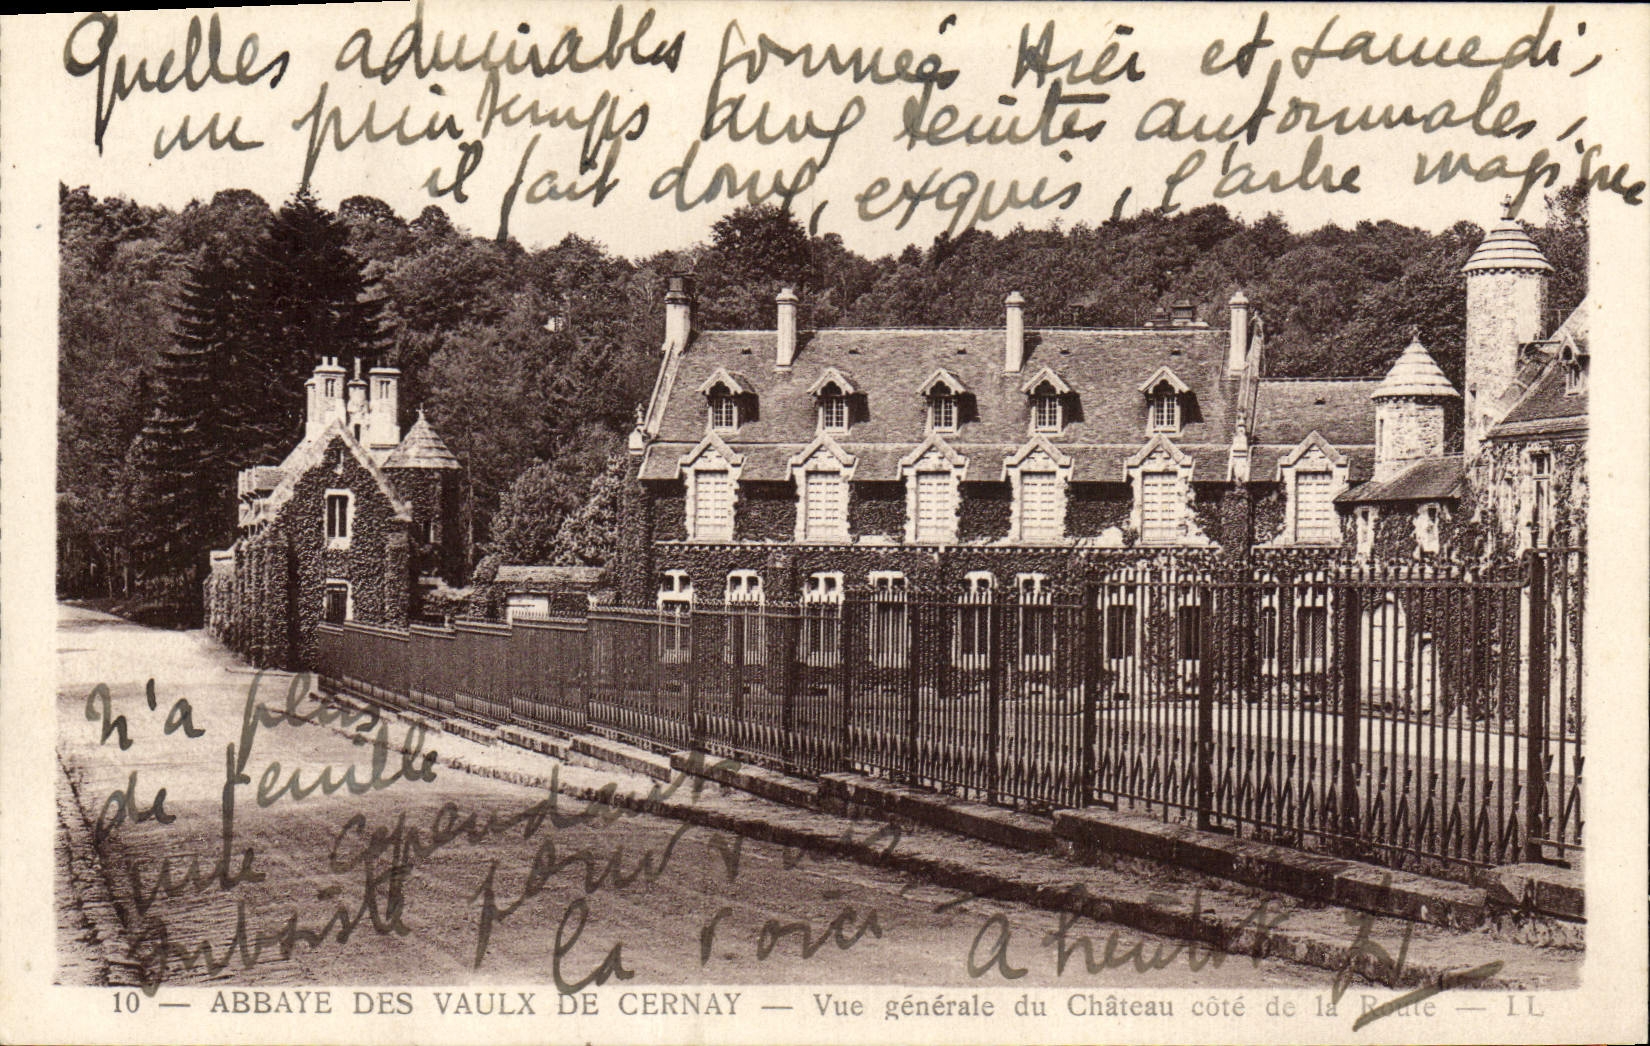 Quelles admirables journées Hier et samedi,
un printemps aux teintes automnales,
il fait doux, exquis, l'arbre magique
N'a plus
de feuille
une cependant
subsiste pour vous
la voici – à bientôt
10 — ABBAYE DES VAULX DE CERNAY — Vue générale du Château côté de la Route — LL